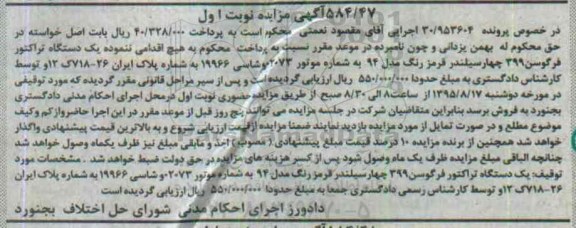 ۵۸۴/۴۷ آگهی مزایده نوبت اول
در خصوص پرونده ۳۰/۹۵۳۶۰۴ اجرایی آقای مقصود نعمتی محکوم است به پرداخت ۴۰/۳۲۸/۰۰۰ ریال بابت اصل خواسته در
حق محکوم له بهمن یزدانی و چون نامبرده در موعد مقرر نسبت به پرداخت محکوم به هیچ اقدامی ننموده یک دستگاه تراکتور
فرگوسن۳۹۹ چهارسیلندر قرمز رنگ مدل ۹۴ به شماره موتور ۲۰۷۳ وشاسی ۱۹۹۶۶ به شماره پلاک ایران ۲۶-۷۱۸ک ۱۲و توسط
کارشناس دادگستری به مبلغ حدودا ۵۵۰/۰۰۰/۰۰۰ ریال ارزیابی گردیده است و پس از سیر مراحل قانونی مقرر گردیده که مورد توقیفی
در مورخه دوشنبه ۱۳۹۵/۸/۱۷ از ساعت۸ الی ۸/۳۰ صبح از طریق مزایده حضوری نوبت اول درمحل اجرای احکام مدنی دادگستری
بجنورد به فروش برسد بنابراین متقاضیان شرکت در جلسه مزایده می توانند پنج روز قبل از موعد مقرر در این اجرا حاضرواز کم وکیف
موضوع مطلع و در صورت تمایل از مورد مزایده بازدید نمایند ضمنا مزایده از قیمت ارزیابی شروع و به بالاترین قیمت پیشنهادی واگذار
خواهد شد همچنین از برنده مزایده ۱۰ درصد قیمت مبلغ پیشنهادی ( مصوب ) اخذ و مابقی مبلغ نیز ظرف یکماه وصول خواهد شد
چنانچه الباقی مبلغ مزایده ظرف یک ماه وصول نشود پس از کسر هزینه های مزایده در حق دولت ضبط خواهد شد . مشخصات مورد
توقیف: یک دستگاه تراکتور فرگوسن۳۹۹ چهارسیلندر قرمز رنگ مدل ۹۴ به شماره موتور ۲۰۷۳-و شاسی ۱۹۹۶۶ به شماره پلاک ایران
۲۶-۷۱۸ک ۱۲و توسط کارشناس رسمی دادگستری جمعا به مبلغ حدودا ۵۵۰/۰۰۰/۰۰۰ ریال ارزیابی گردیده است
دادورز اجرای احکام مدنی شورای حل اختلاف بجنورد